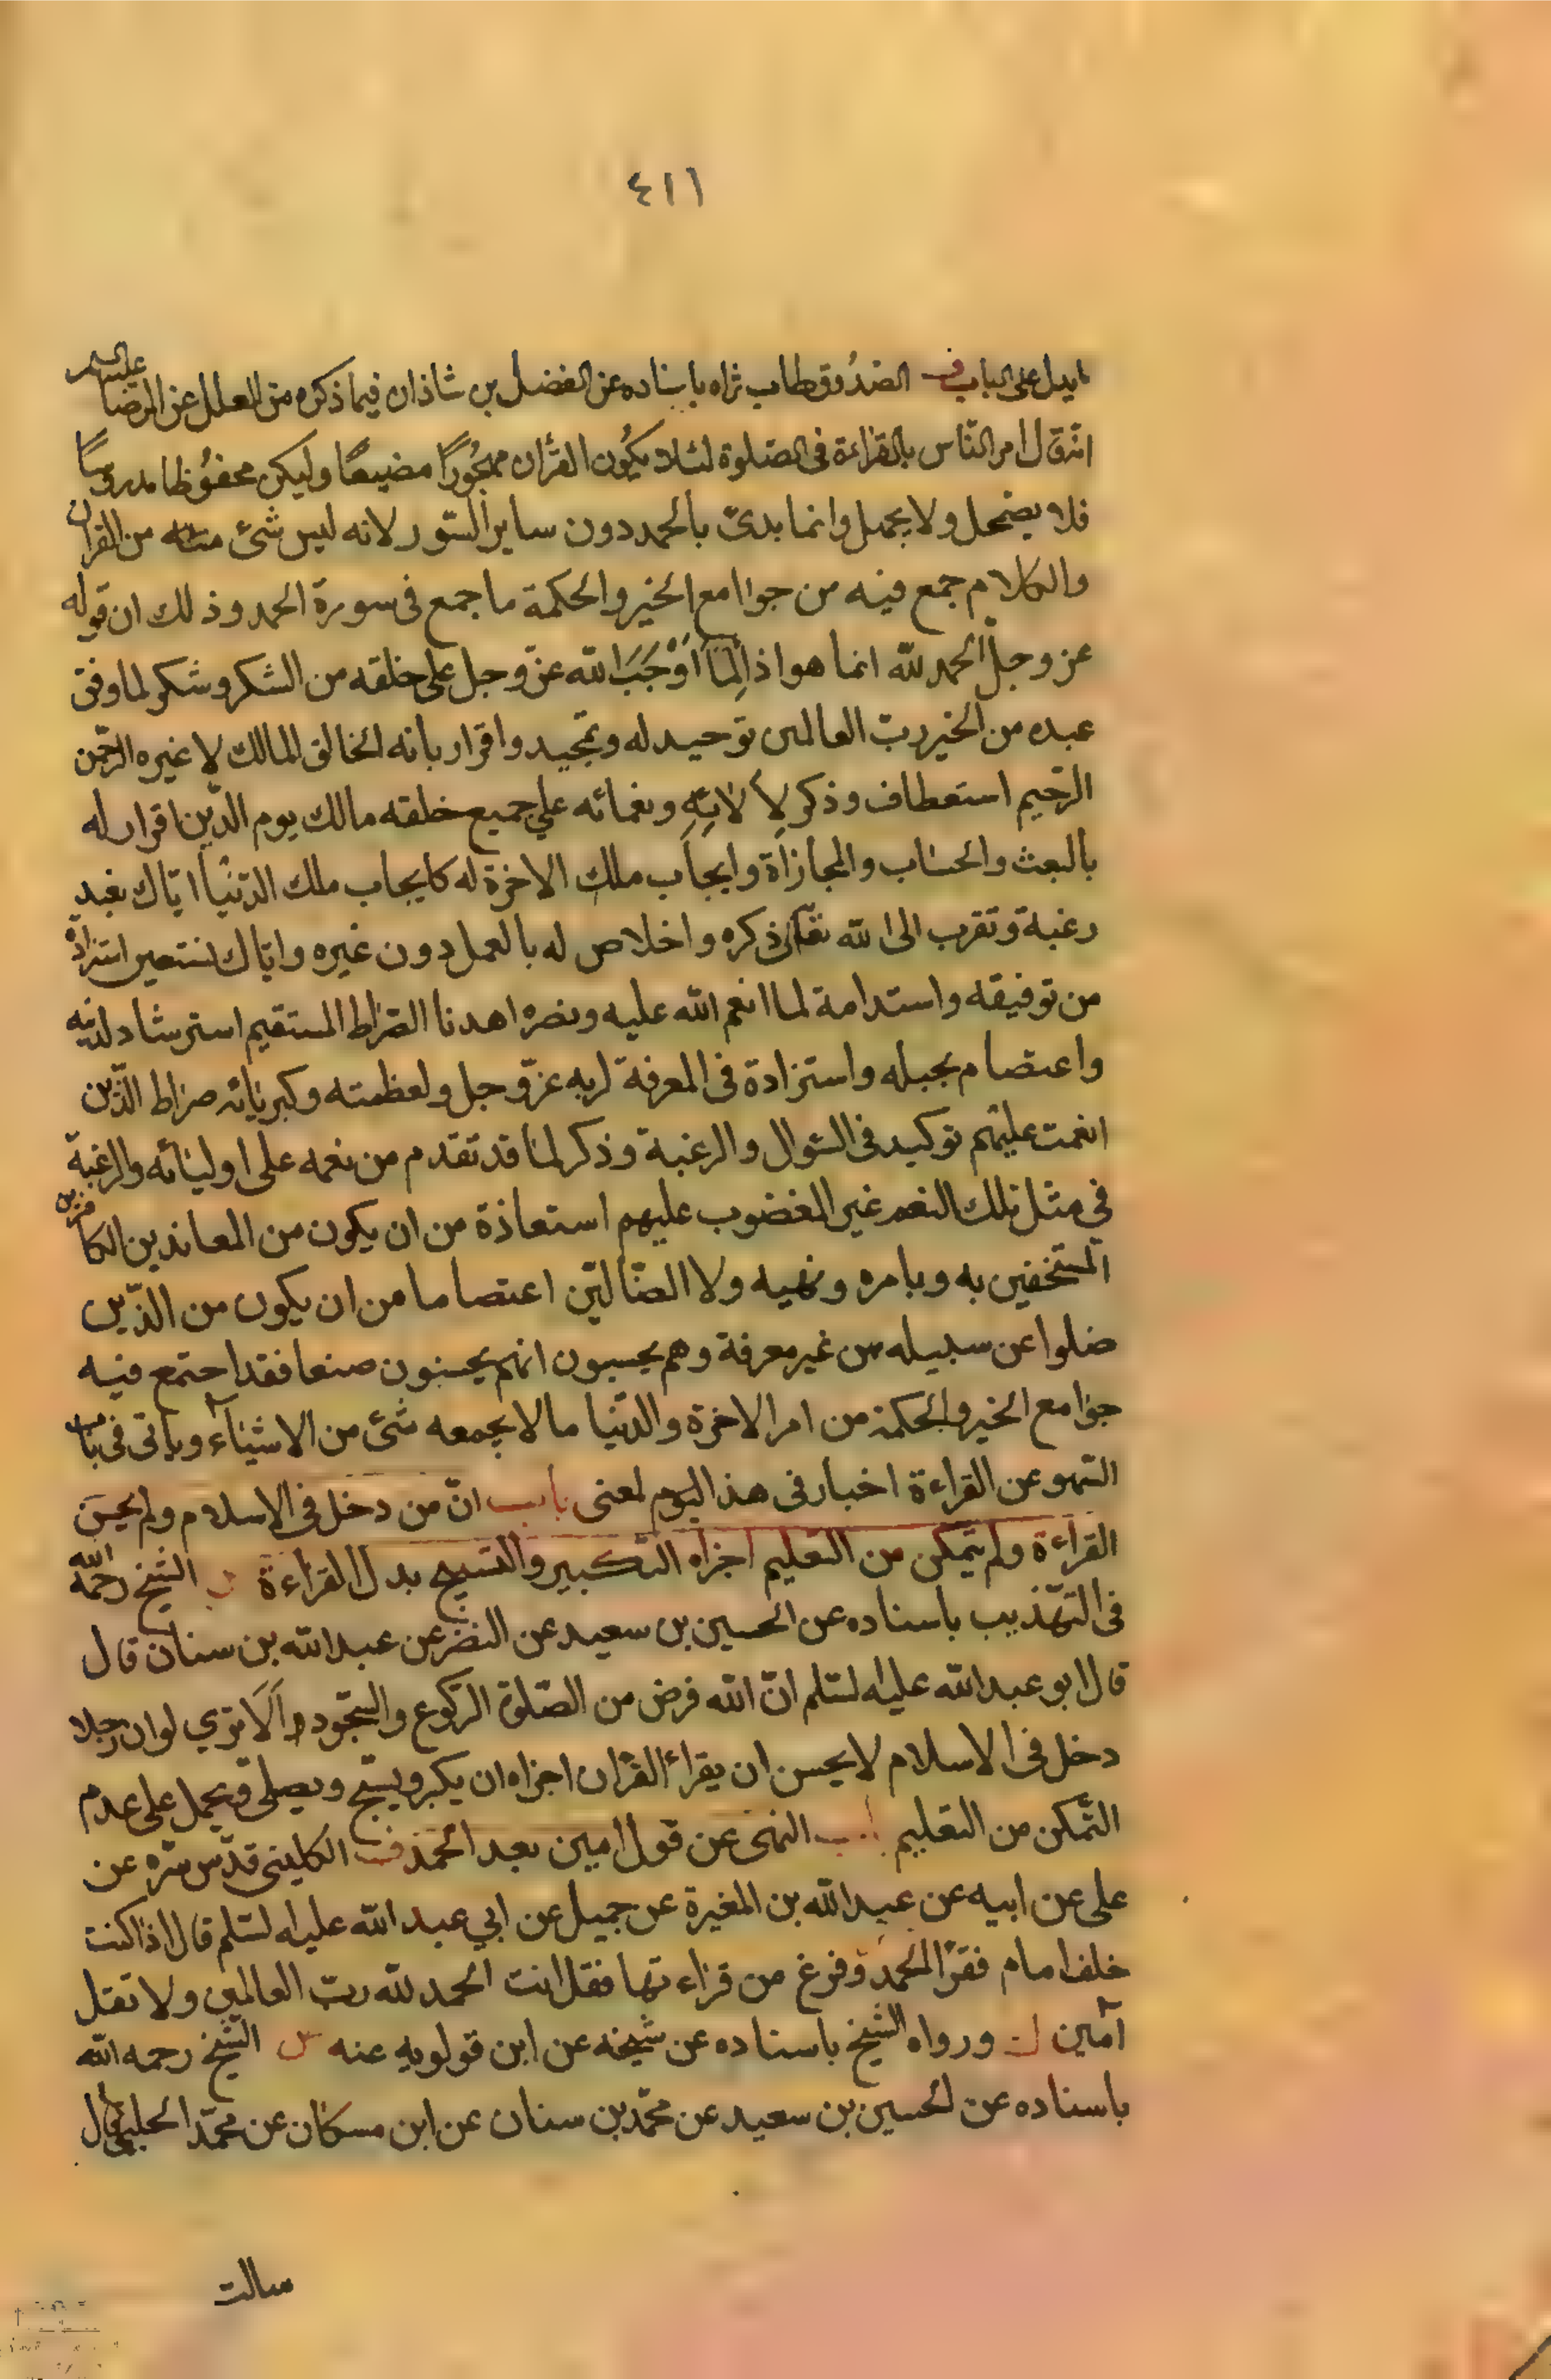 ٤١١
مايدل على الباب الصدوق طاب ثراه باسناده عن الفضل بن شاذان فيما ذكره من العلل عن الرضا عليه السلم
انه قال امر الناس بالقراءة فى الصلوة لئلا يكون القرأن مهجورًا مضيعًا وليكن محفوظا مدروسًا
فلا يضمحل ولا يجهل وانما بدئ بالحمد دون ساير السور لانه ليس شئ من القران
والكلام جمع فيه من جوامع الخير والحكمة ما جمع فى سورة الحمد وذلك ان قوله
عز وجل الحمد لله انما هو اذا لِمَا اَوْجَبَ الله عزّ وجل على خلقه من الشكر وشكر لما وفق
عبده من الخير ربّ العالمين توحيد له وتمجيد واقرار بانه الخالق المالك لا غيره الرّحمن
الرّحيم استعطاف وذكر لِآلائِهِ ونعمائه على جميع خلقه مالك يوم الدّين اقرار له
بالبعث والحساب والمجازاة وايجاب ملك الاخرة له كايجاب ملك الدّنيا ايّاك نعبد
رغبة وتقرب الى الله تعالى ذكره واخلاص له بالعمل دون غيره واياك نستعين استزادة
من توفيقه واستدامة لما انعم الله عليه ونصره اهدنا الصّراط المستقيم استرشاد لدينه
واعتصام بحبله واستزادة فى المعرفة لربه عزّ وجل ولعظمته وكبريائه صراط الّذين
انعمت عليهم توكيد فى السّوال والرغبة وذكر لما قد تقدم من نعمه على اوليائه والرغبة
في مثل تلك النعم غير المغضوب عليهم استعاذة من ان يكون من المعاندين الكافرين
المستخفين به وبامره ونهيه ولا الضّالّين اعتصاما من ان يكون من الذّين
ضلوا عن سبيله من غير معرفة وهم يحسبون انهم يحسنون صنعا فقد اجتمع فيه
جوامع الخير والحكمة من امر الاخرة والدّنيا ما لا يجمعه شئ من الاشياء وياتى فى باب
السّهو عن القراءة اخبار فى هذا المعنى باب انّ من دخل فى الاسلام ولم يحسن
القراءة ولم يتمكن من التعليم اجزاه التكبير والتسبيح بدل القراءة الشيخ رحمه الله
فى التّهذيب باسناده عن الحسين بن سعيد عن النضر عن عبد الله بن سنان قال
قال ابو عبد الله عليه لسّلم انّ الله فرض من الصّلوة الرّكوع والسّجود اَلَا ترى لو ان رجلا
دخل فى الاسلام لا يحسن ان يقرأ القرأن اجزاه ان يكبر ويسبّح ويصلى ق يحمل على عدم
التّمكن من التعليم باب النهى عن قول امين بعد الحمد الكلينى قدّس سّره عن
على عن ابيه عن عبد الله بن المغيرة عن جميل عن ابي عبد الله عليه لسّلم قال اذا كنت
خلف امام فقرأ الحمد وفرغ من قراءتها فقل انت الحمد لله ربّ العالمين ولا تقل
آمين ورواه الشيخ باسناده عن شيخه عن ابن قولويه عنه الشيخ رحمه الله
باسناده عن لحسين بن سعيد عن محمّد بن سنان عن ابن مسكان عن محمّد الحلبى قال
سالت